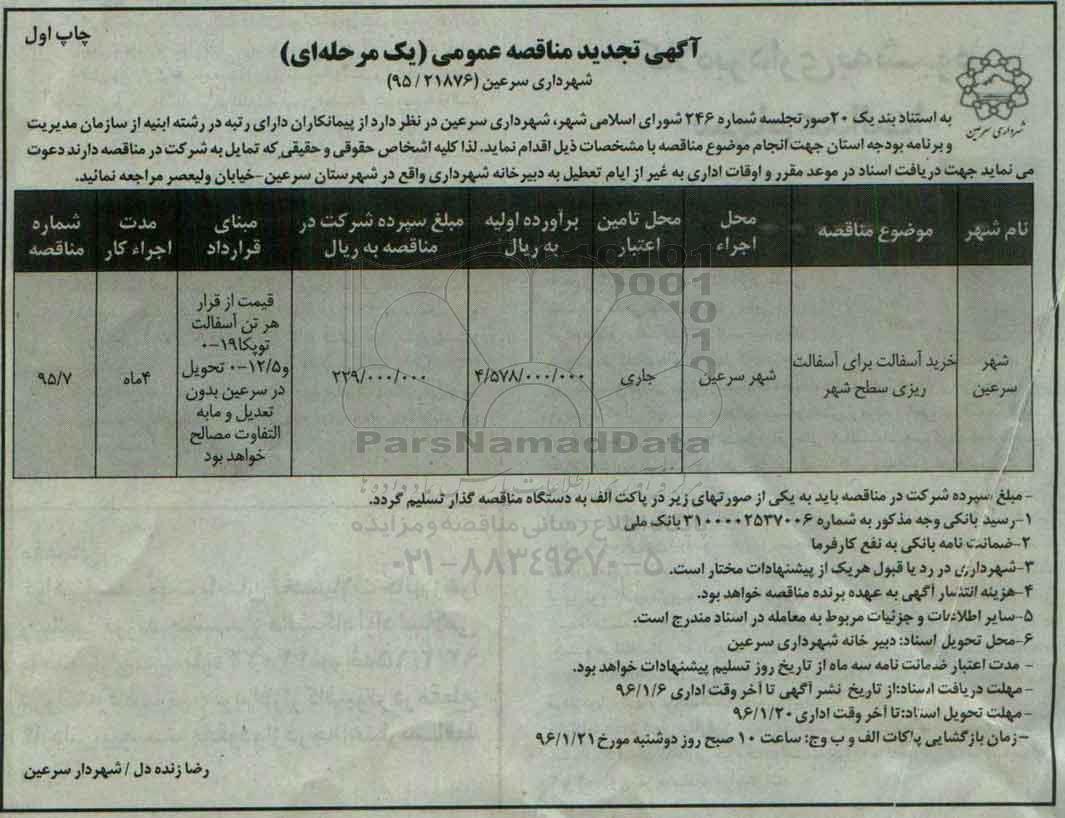 چاپ اول
آگهی تجدید مناقصه عمومی (یک مرحله‌ای)
شهرداری سرعین (۹۵/۲۱۸۷۶)
شهرداری سرعین
به استناد بند یک ۲۰صورتجلسه شماره ۲۴۶ شورای اسلامی شهر، شهرداری سرعین در نظر دارد از پیمانکاران دارای رتبه در رشته ابنیه از سازمان مدیریت
و برنامه بودجه استان جهت انجام موضوع مناقصه با مشخصات ذیل اقدام نماید. لذا کلیه اشخاص حقوقی و حقیقی که تمایل به شرکت در مناقصه دارند دعوت
می نماید جهت دریافت اسناد در موعد مقرر و اوقات اداری به غیر از ایام تعطیل به دبیرخانه شهرداری واقع در شهرستان سرعین-خیابان ولیعصر مراجعه نمائید.
نام شهر
موضوع مناقصه
محل
اجراء
محل تامین
اعتبار
برآورده اولیه
به ریال
مبلغ سپرده شرکت در
مناقصه به ریال
مبنای
قرارداد
مدت
اجراء کار
شماره
مناقصه
شهر
سرعین
خرید آسفالت برای آسفالت
ریزی سطح شهر
شهر سرعین
جاری
۴/۵۷۸/۰۰۰/۰۰۰
۲۲۹/۰۰۰/۰۰۰
قیمت از قرار
هر تن آسفالت
توپکا۱۹-۰
و۱۲/۵-۰ تحویل
در سرعین بدون
تعدیل و مابه
التفاوت مصالح
خواهد بود
۴ماه
۹۵/۷
ParsNamadData
- مبلغ سپرده شرکت در مناقصه باید به یکی از صورتهای زیر در پاکت الف به دستگاه مناقصه گذار تسلیم گردد.
۱-رسید بانکی وجه مذکور به شماره ۳۱۰۰۰۰۲۵۳۷۰۰۶ بانک ملی
۲-ضمانت نامه بانکی به نفع کارفرما
۰۲۱-۸۸۳۴۹۶۷۰-۵
۳-شهرداری در رد یا قبول هریک از پیشنهادات مختار است.
۴-هزینه انتشار آگهی به عهده برنده مناقصه خواهد بود.
۵-سایر اطلاعات و جزئیات مربوط به معامله در اسناد مندرج است.
۶-محل تحویل اسناد: دبیر خانه شهرداری سرعین
- مدت اعتبار ضمانت نامه سه ماه از تاریخ روز تسلیم پیشنهادات خواهد بود.
- مهلت دریافت اسناد:از تاریخ نشر آگهی تا آخر وقت اداری ۹۶/۱/۶
- مهلت تحویل اسناد:تا آخر وقت اداری ۹۶/۱/۲۰
- زمان بازگشایی پاکات الف و ب وج: ساعت ۱۰ صبح روز دوشنبه مورخ ۹۶/۱/۲۱
رضا زنده دل / شهردار سرعین